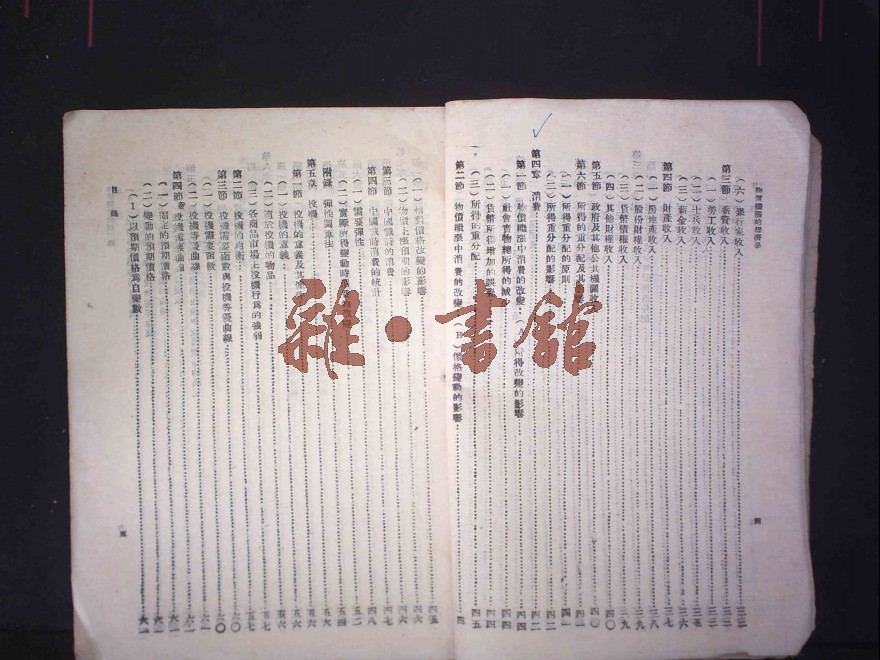 （六）銀行家收入……三三
第三節 薪資收入……三三
（一）勞工收入……三三
（二）士兵收入……三五
（三）薪金收入……三六
第四節 財產收入……三七
（一）房地產收入……三八
（二）股份財權收入……三九
（三）貨幣債權收入……三九
（四）其他財權收入……四〇
第五節 政府及其他公共機關收……四〇
第六節 所得的重分配及其影……四一
（一）所得重分配的原則……四一
（二）所得重分配的影響……四二
第四章 消費……四二
第一節 物價繼漲中消費的改變：所得改變的影響……四四
（一）社會實物總所得的減少……四四
（二）貨幣所得增加的誤……四四
（三）所得的重分配……四五
第二節 物價繼漲中消費的改變（B）價格變動的影響……四
四
（一）相對價格改變的影響……四五
（二）物價上漲預期的影響……四六
第三節 中國戰時的消費……四七
第四節 中國戰時消費的統計……四八
（一）需要彈性……五二
（二）實際所得變動時……五四
附錄 彈性圖算法……五六
第五章 投機……五六
第一節 投機的意義及其……五六
（一）投機的意義……五六
（二）適於投機的物品……五七
（三）各商品市場上投機行為的強弱……五七
第二節 投機的均衡……六〇
第三節 投機需要函數與投機等優曲線……六〇
（一）投機需要函數……六一
（二）投機等優曲線……六一
第四節 投機需要曲線……六一
（一）固定的預期價格……六一
（二）變動的預期價格……六一
（1）以預期價格為自變數……六一
目錄
五
雜·書館